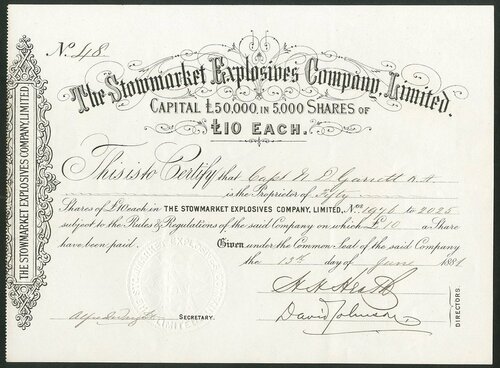 No. 48
The Stowmarket Explosives Company, Limited.
CAPITAL £50,000, IN 5,000 SHARES OF
£10 EACH.
This is to Certify that Capt
is the Proprietor of Fifty
Shares of £10 each in THE STOWMARKET EXPLOSIVES COMPANY, LIMITED, Nos 1976 to 2025
subject to the Rules & Regulations of the said Company on which £10 a Share
have been paid. Given under the Common Seal of the said Company
the 13th day of June 1881
SECRETARY.
DIRECTORS.
THE STOWMARKET EXPLOSIVES COMPANY, LIMITED